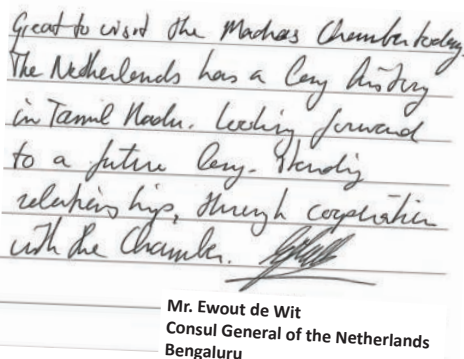 Great to visit the Madras Chamber today.
The Netherlands has a long history
in Tamil Nadu. Looking forward
to a future long-standing
relationships, through cooperation
with the Chamber.
Mr. Ewout de Wit
Consul General of the Netherlands
Bengaluru